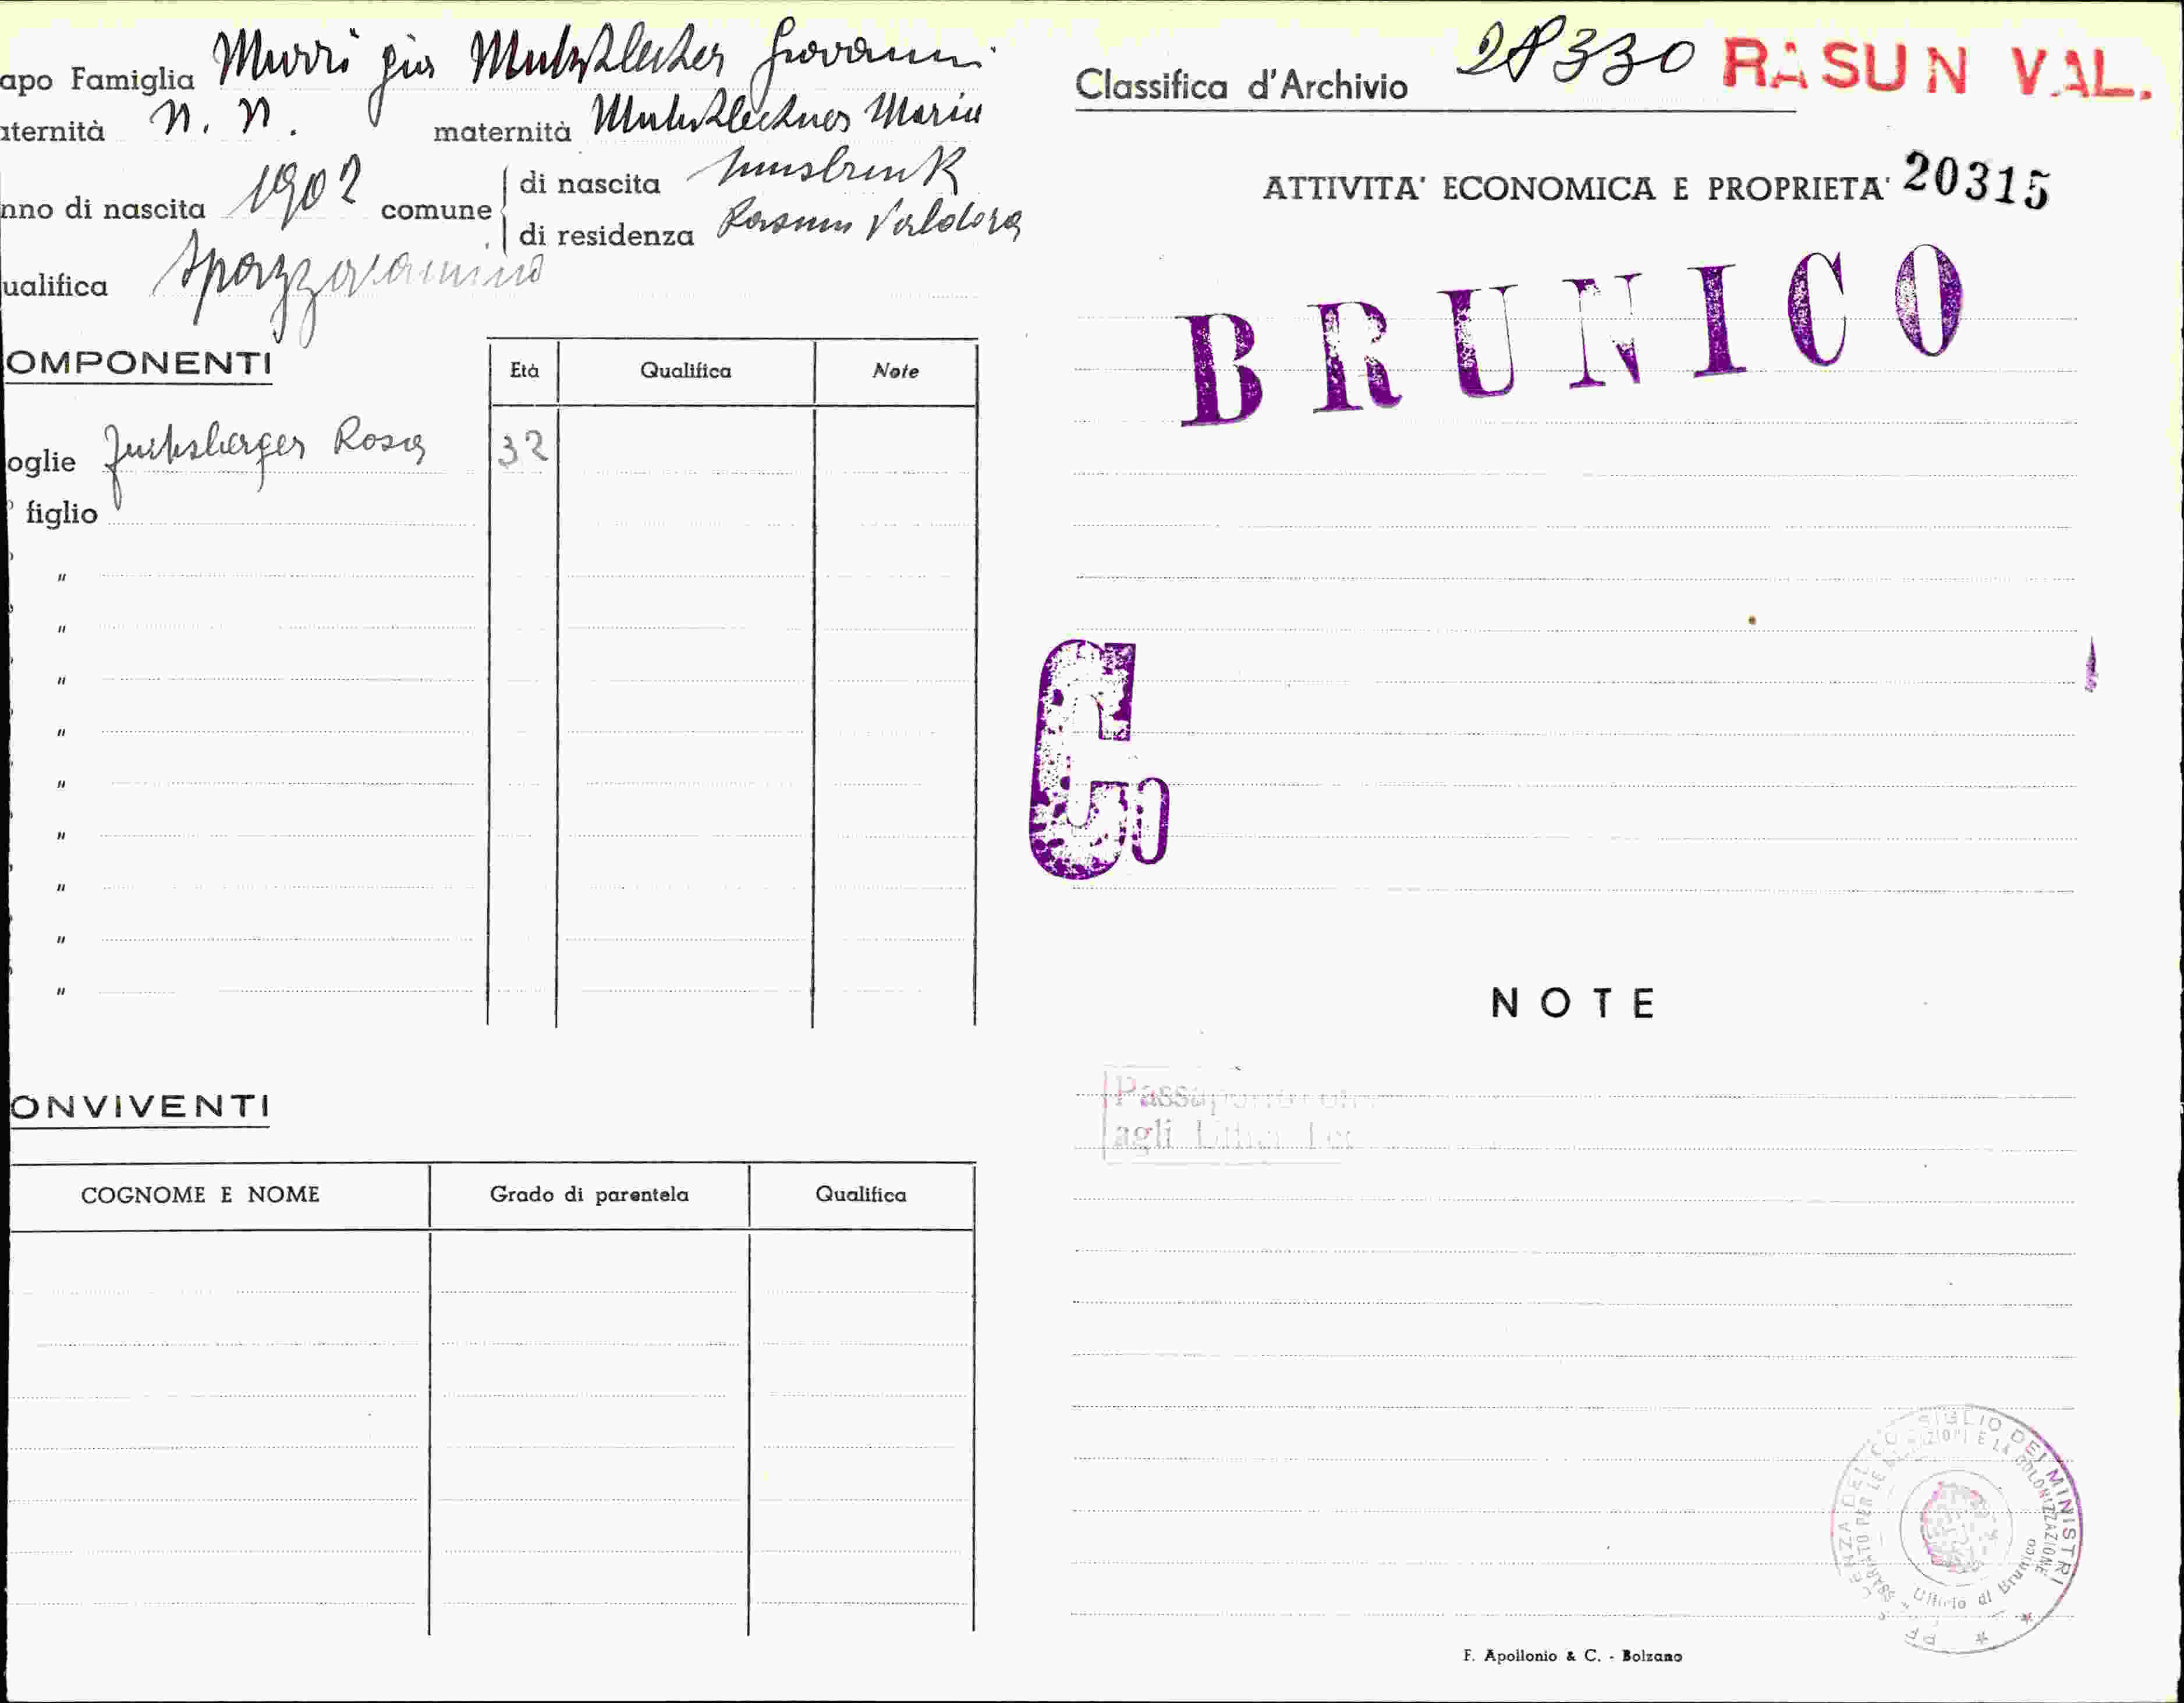 apo Famiglia Murri già Mutschlechner Giovanni
aternità N. N. maternità Mutschlechner Maria
nno di nascita 1902 comune di nascita Innsbruck
di residenza Rasun Valdora
ualifica Spazzacamino
OMPONENTI
Età Qualifica Note
oglie Fuchsberger Rosa 32
figlio
"
"
"
"
"
"
"
"
"
ONVIVENTI
COGNOME E NOME Grado di parentela Qualifica
Classifica d'Archivio 28330 RASUN VAL.
ATTIVITA' ECONOMICA E PROPRIETA' 20315
BRUNICO
C
NOTE
agli
SIGLIO DEI MINISTRI
E LA COLONIZZAZIONE
Ufficio di Brunico
F. Apollonio & C. - Bolzano